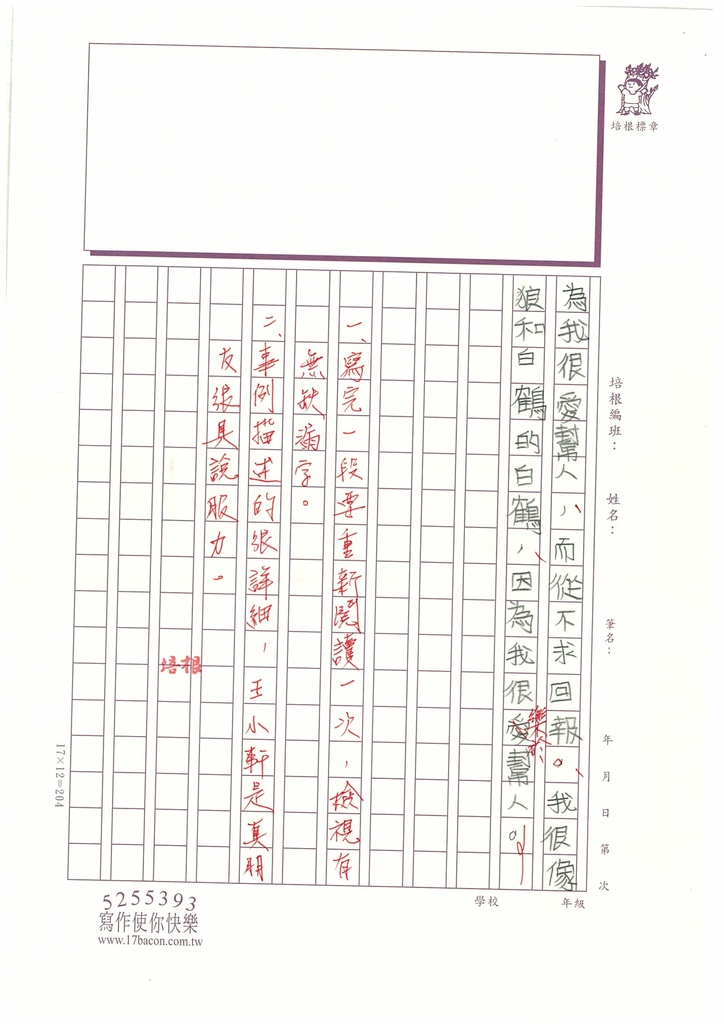 培根標章
培根編班：　姓名：　筆名：　年　月　日　第　次
為我很愛幫人，而從不求回報。我很像
狼和白鶴的白鶴，因為我很愛幫人。
樂於
一、寫完一段要重新閱讀一次，檢視有
無缺漏字。
二、事例描述的很詳細，王小軒是真朋
友很具說服力。
培根
學校　年級
17×12=204
5255393
寫作使你快樂
www.17bacon.com.tw